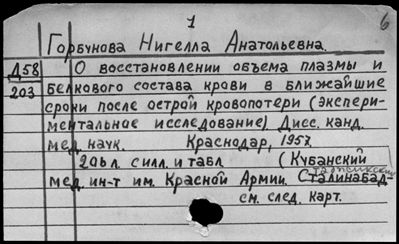 1 6
Горбунова Нигелла Анатольевна.
Д58 О восстановлении объема плазмы и
203 белкового состава крови в ближайшие
сроки после острой кровопотери (экспери-
ментальное исследование) Дисс. канд.
мед. наук. Краснодар, 1957.
206л. с илл. и табл (Кубанский
мед. ин-т им. Красной Армии. Сталинабад-
см. след. карт.